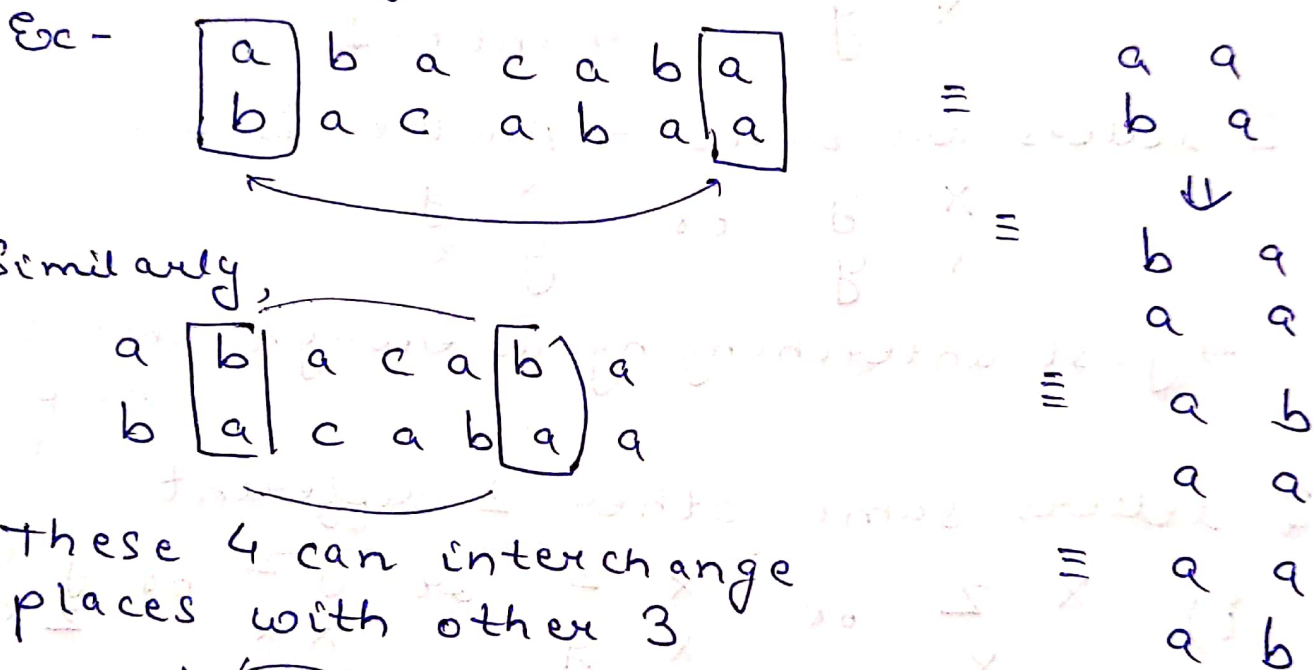 Ex -
a b a c a b a
b a c a b a a
≡ a a
b a
⇓
≡ b a
a a
≡ a b
a a
≡ a a
a b
Similarly,
a b a c a b a
b a c a b a a
These 4 can interchange
places with other 3